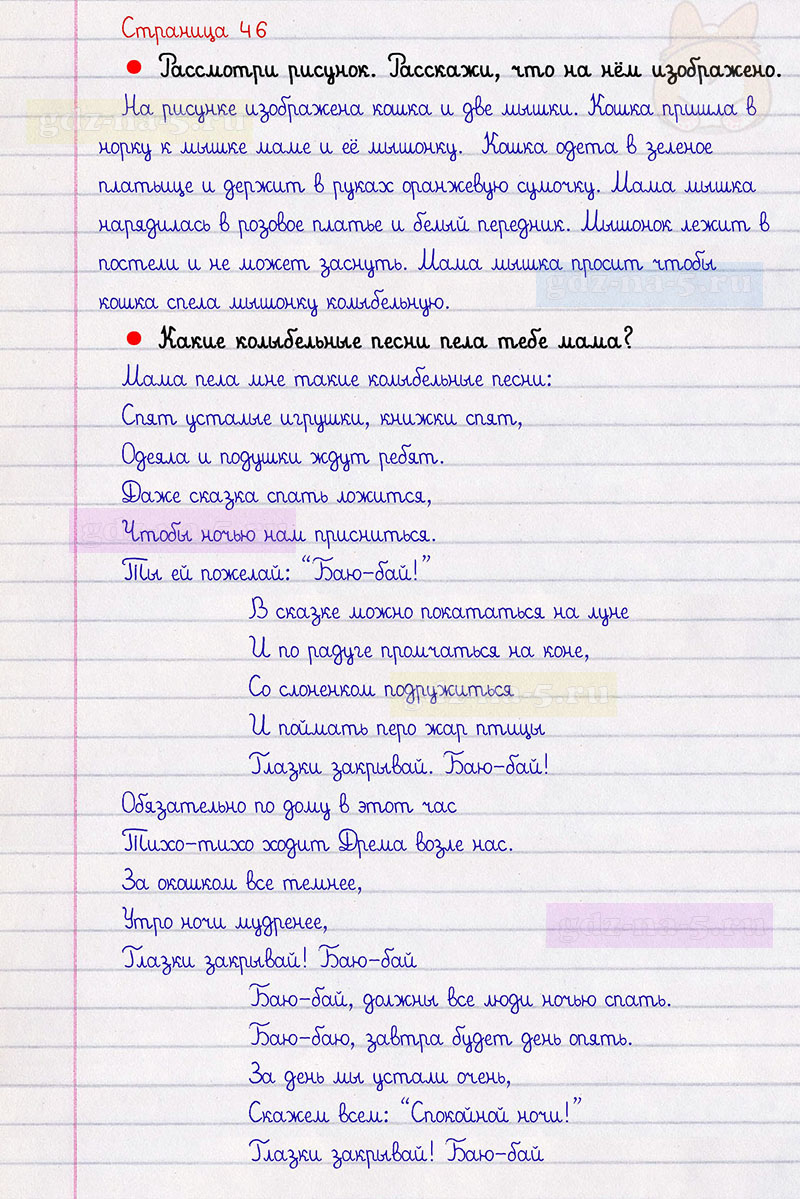 Страница 46
Рассмотри рисунок. Расскажи, что на нём изображено.
На рисунке изображена кошка и две мышки. Кошка пришла в
норку к мышке маме и её мышонку. Кошка одета в зеленое
платьице и держит в руках оранжевую сумочку. Мама мышка
нарядилась в розовое платье и белый передник. Мышонок лежит в
постели и не может заснуть. Мама мышка просит чтобы
кошка спела мышонку колыбельную.
Какие колыбельные песни пела тебе мама?
Мама пела мне такие колыбельные песни:
Спят усталые игрушки, книжки спят,
Одеяла и подушки ждут ребят.
Даже сказка спать ложится,
Чтобы ночью нам присниться.
Ты ей пожелай: “Баю-бай!”
В сказке можно покататься на луне
И по радуге промчаться на коне,
Со слоненком подружиться
И поймать перо жар птицы
Глазки закрывай. Баю-бай!
Обязательно по дому в этот час
Тихо-тихо ходит Дрема возле нас.
За окошком все темнее,
Утро ночи мудренее,
Глазки закрывай! Баю-бай
Баю-бай, должны все люди ночью спать.
Баю-баю, завтра будет день опять.
За день мы устали очень,
Скажем всем: “Спокойной ночи!”
Глазки закрывай! Баю-бай
gdz-na-5.ru
gdz-na-5.ru
gdz-na-5.ru
gdz-na-5.ru
gdz-na-5.ru